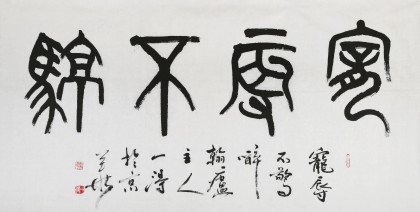 寵辱不驚
寵辱
不驚
翰廬
主人
一得
於京